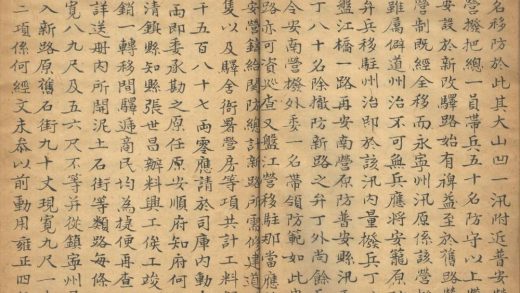 名移防於此其大山凹一汛附近普安
營撥把總一員帶兵五十名防守以上
安設於新改驛路始有裨益至於舊路
營制既經全移而永寧州汛原係該營
雖屬僻道州治不可無兵應將安龍原
弁兵移駐州治即於該汛內量撥兵丁
盤江橋一路再安南營原防普安縣汛
丁八十名除撤防新路之弁丁外尚餘
今安南營撥外委一名帶領防範如此
路亦可資巡查又盤江營移駐那當應
安營鑄給關防總計新路所需修建道
隻以及驛舍衙署營房等項共計工料
千五百八十七兩零應請於司庫內動
兩即委承勘之原任安順府知府何
清鎮縣知縣張世昌辦料興工俟工竣
銷一轉移間驛遞商民均為捷便再查
詳送冊內所開泥土石街等類路每條
寬八九尺及五六尺不等并從鎮寧州
入新路原舊石街九十丈現寬九尺一
二項係何經文未叅以前動用雍正四